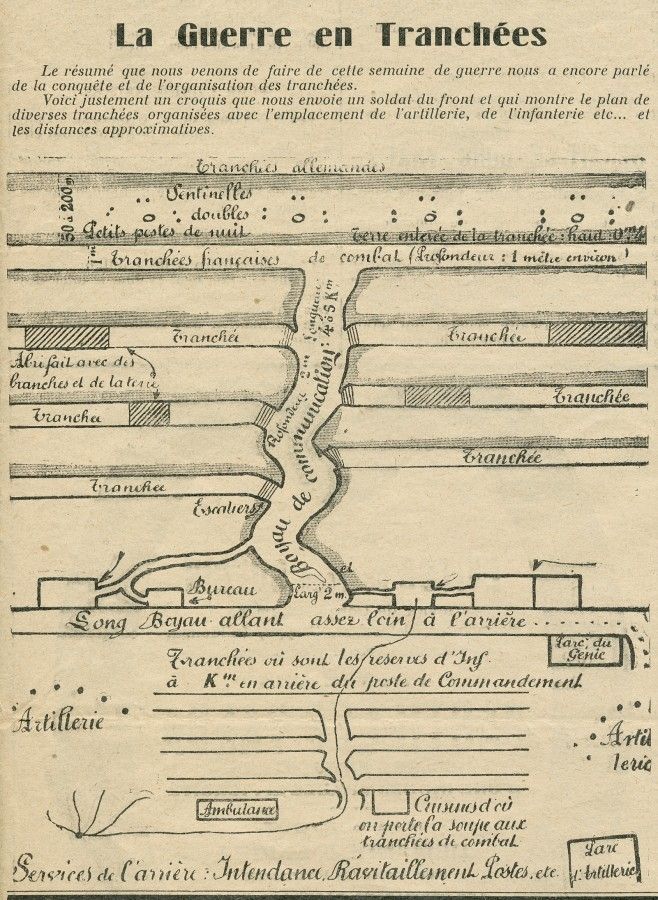 La Guerre en Tranchées
Le résumé que nous venons de faire de cette semaine de guerre nous a encore parlé
de la conquête et de l'organisation des tranchées.
Voici justement un croquis que nous envoie un soldat du front et qui montre le plan de
diverses tranchées organisées avec l'emplacement de l'artillerie, de l'infanterie etc... et
les distances approximatives.
Tranchées allemandes
50 à 200m
Sentinelles
doubles
Petits postes de nuit
Terre enlevée de la tranchée : haut 0m
1m
Tranchées françaises de combat (Profondeur : 1 mètre environ)
Tranchée
Tranchée
Abri fait avec des
branches et de la terre
Tranchée
Tranchée
Tranchée
Tranchée
Profondeur 2m Longueur : 4 à 5 Km
Boyau de communication
Escaliers
Bureau
Larg 2 m.
et
Long Boyau allant assez loin à l'arrière
Parc du
Génie
Tranchées où sont les réserves d'Inf.
à Km en arrière du poste de Commandement
Artillerie
Artil
lerie
Ambulance
Cuisines d'où
on porte la soupe aux
tranchées de combat
Parc
d'Artillerie
Services de l'arrière : Intendance, Ravitaillement, Postes, etc.